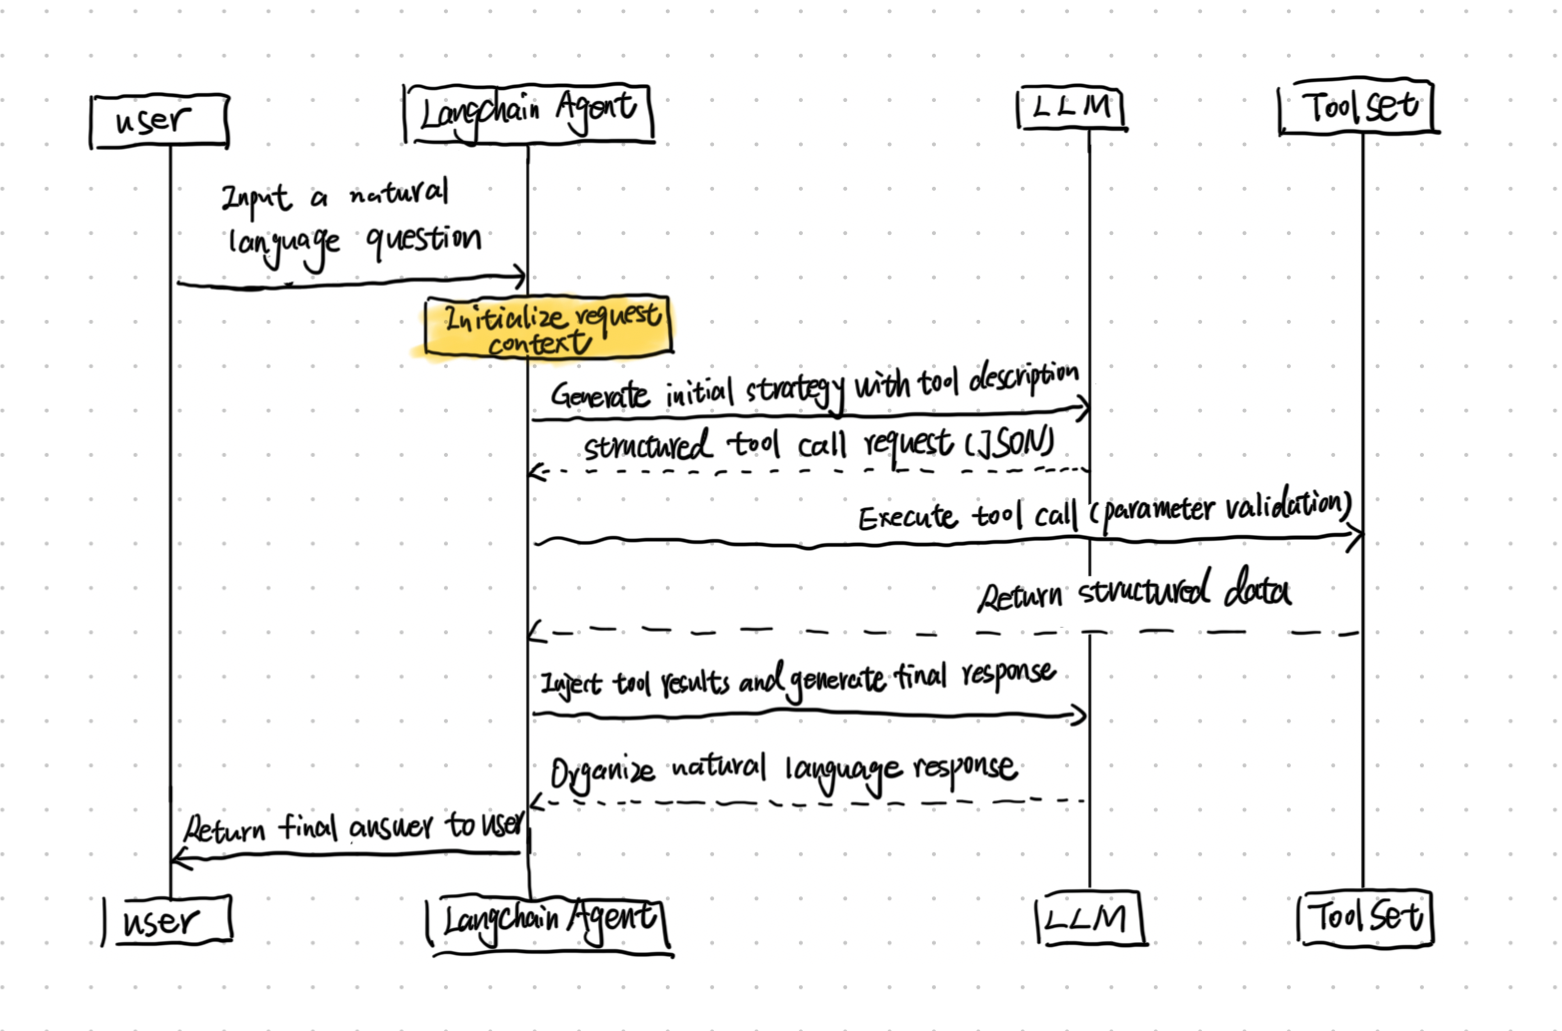 user
Langchain Agent
LLM
Toolset
Input a natural
language question
Initialize request
context
Generate initial strategy with tool description
structured tool call request (JSON)
Execute tool call (parameter validation)
Return structured data
Inject tool results and generate final response
Organize natural language response
Return final answer to user
user
Langchain Agent
LLM
ToolSet